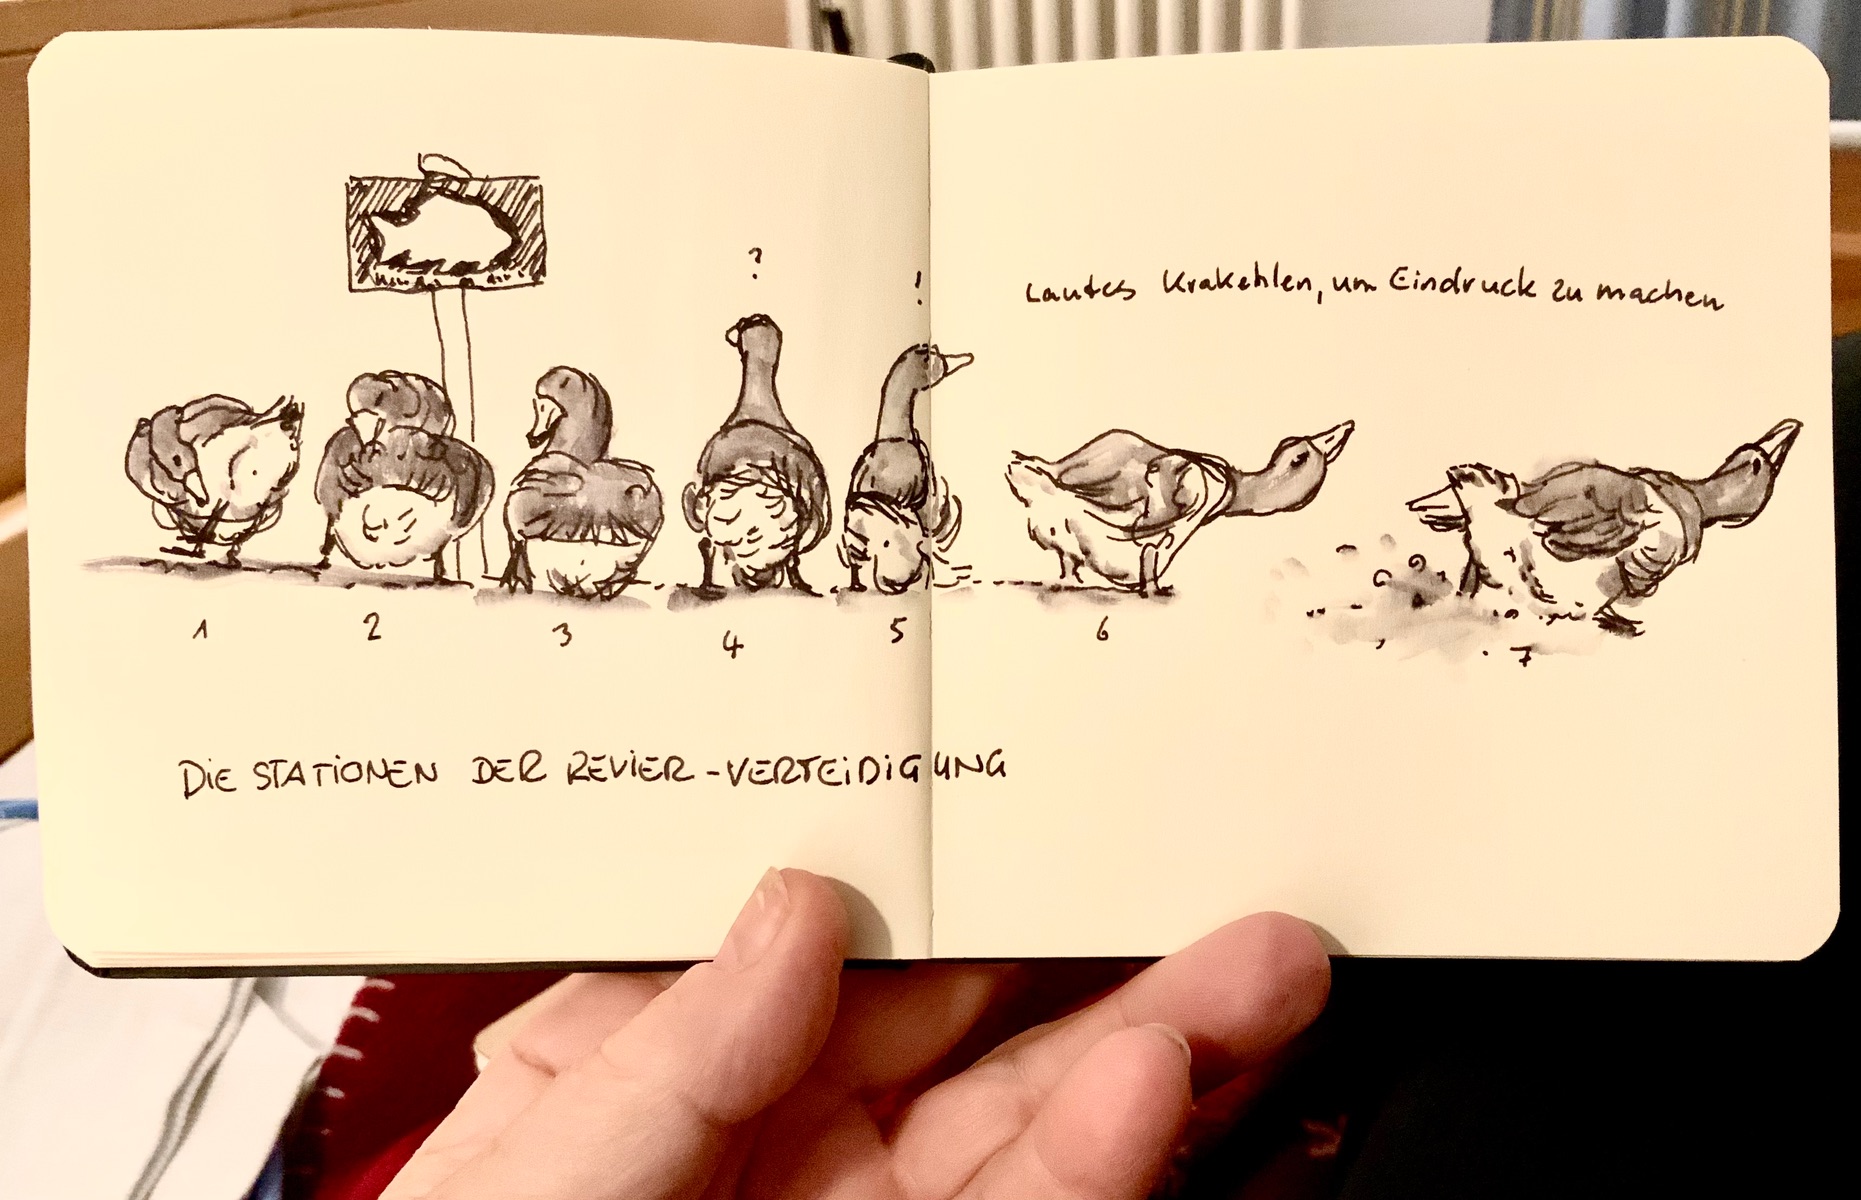 ?
!
Lautes Krakehlen, um Eindruck zu machen
1 2 3 4 5 6 7
DiE STATiONEN DER REViER-VERTEiDiGUNG